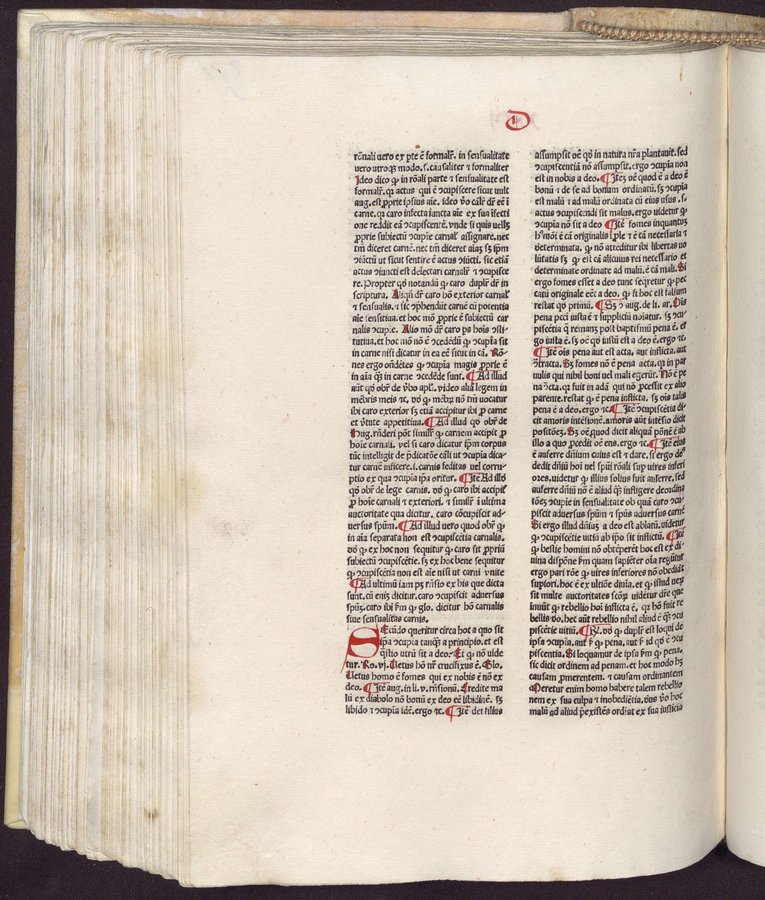 D
rōnali vero ex pte ē formalr̄. in sensualitate
vero utroqꝫ modo. s. causaliter et formaliter
Ideo dico ꝙ in rōali parte ⁊ sensualitate est
formalr̄. qꝛ actus qui ē ↄcupiscere sicut vult
aug. est ꝓprie ipsius aīe. ideo v̄o cālr̄ dr̄ eē ī
carne. qꝛ caro infecta iuncta aīe ex sua īfecti
one reddit eā ↄcupiscentē. vnde si quis vellꝫ
ꝓprie subiectū ↄcupie carnalꝭ assignare. nec
tm̄ diceret carnē. nec tm̄ diceret aīaꝫ sꝫ ipm̄
ↄiūctū ut sicut sentire ē actus ↄiūcti. sic etiā
actus ↄiuncti est delectari carnalr̄ ⁊ ↄcupisce
re. Propter qō notandū ꝙ caro duplr̄ dr̄ in
scriptura. Aliqn̄ dr̄ caro hō exterior carnalꝭ
⁊ sensualis. ⁊ sic ↄp̄hendit carnē cū potentia
aīe sensitiua. et hoc mō ꝓprie ē subiectū car
nalis ↄcupie. Alio mō dr̄ caro ps hoīs ↄsti-
tutiua. et hoc mō nō ē ↄcedēdū ꝙ ↄcupīa sit
in carne nisi dicatur in ea eē sicut in cā. Rō-
nes ergo oñdētes ꝙ ↄcupia magis ꝓprie ē
in aīa ꝙꝫ in carne ↄcedēde sunt. ¶ Ad illud
aūt qō obr̄ de v̄bo apl̄i. video aliā legem in
mēbris meis ⁊c̄. vō ꝙ mēbꝝ nō tm̄ uocatur
ibi caro exterior sꝫ etiā accipitur ibi ꝓ carne
et v̄tute appetitiua. ¶ Ad illud qō obr̄ de
Aug. rn̄deri pōt similr̄ ꝙ carnem accipit ꝓ
hoīe carnali. vel si caro dicatur ipm̄ corpus
tūc intelligit de p̄dicatōe cāli ut ↄcupia dica-
tur carnē inficere. i. carnis feditas uel corru-
ptio ex qua ↄcupia ipa oritur. ¶ Itē Ad illō
qō obr̄ de lege carnis. vō ꝙ caro ibi accipitꝛ
ꝓ hoīe carnali ⁊ exteriori. ⁊ similr̄ ī ultima
auctoritate qua dicitur. caro cōcupiscit ad-
versus spūm. ¶ Ad illud vero quod obr̄ ꝙ
in aīa separata non est ↄcupiscētia carnalis.
vō ꝙ ex hoc non sequitur ꝙ caro sit ꝓpriū
subiectū ↄcupiscētie. sꝫ ex hoc bene sequitur
ꝙ ↄcupiscētia non est aīe nisi ut carni vnite
¶ Ad ultimū iam pꝫ rn̄sio ex his que dicta
sunt. cū eniꝫ dicitur. caro ↄcupiscit adversus
spūꝫ. caro ibi ẜm ꝙ glo. dicitur hō carnalis
siue sensualitas carnis.
SEcūdo queritur circa hoc a quo sit
ipa ↄcupia tanqꝫ a principio. et est
qstio utrū sit a deo. Et ꝙ nō uide
tur. Ro. vj. Uetus hō nr̄ crucifixus ē. Glo.
Uetus homo ē fomes qui ex nobis ē nō ex
deo. ¶ Itē aug. in li. v. rn̄sionū. Credite ma
lū ex diabolo nō bonū ex deo eē libidinē. sꝫ
libido ⁊ ↄcupia idē. ergo ⁊c̄. ¶ Itē dei filius
assumpsit oē qō in natura nr̄a plantauit. sed
ↄcupiscentiā nō assumpsit. ergo ↄcupīa non
est in nobis a deo. ¶ Iteꝫ oē quod ē a deo ē
bonū ⁊ de se ad bonum ordinatū. sꝫ ↄcupīa
est malū ⁊ ad malū ordinata cū eius usus. s.
actus ↄcupiscendi sit malus. ergo uidetur ꝙ
ↄcupia nō sit a deo ¶ Itē fomes inquantuꝫ
hmōi ē cā originalis ple ⁊ ē cā necessaria ⁊
determinata. ꝙ nō attēditur ibi libertas uo
lūtatis sꝫ ꝙ est cā alicuius rei necessario et
determinate ordinate ad malū. ē cā mali. Si
ergo fomes esset a deo tunc sequretur ꝙ pec
catū originale eēt a deo. ꝙ si hoc est falsum
restat qō primū. ¶ Sꝫ ↄ aug. de li. ar. Oīs
pena pcci iusta ē ⁊ suppliciū noīatur. sꝫ ↄcu
piscētia q̄ remanꝫ post baptismū pena ē. er
go iusta ē. sꝫ oē qō iustū est a deo ē. ergo ⁊c̄
¶ Itē oīs pena aut est acta. aut inflicta. aut
ↄtracta. Sꝫ fomes nō ē pena acta. qꝛ in par
vulis qui nihil boni uel mali egerūt. Nō ē pe
na ↄcta. qꝛ fuit in adā qui nō ꝓcessit ex alio
parente. restat ꝙ ē pena inflicta. sꝫ oīs talis
pena ē a deo. ergo ⁊c̄ ¶ Itē ↄcupiscētia di
cit amoris intēsionē. amoris aūt intēsio dicit
positōeꝫ. Sꝫ oē quod dicit aliquā pōnē ē ab
illo a quo ꝓcedit oē ens. ergo ⁊c̄ ¶ Itē eius
ē auferre dn̄ium cuius est ⁊ dare. si ergo deꝰ
dedit dn̄iū hoi vel spūi rōali sup vires inferi
ores. uidetur ꝙ illius solius fuit auferre. sed
auferre dn̄iū nō ē aliud qꝫ infligere deordina
tōeꝫ ↄcupie in sensualitate ob quā caro ↄcu
piscit adversus spūm ⁊ spūs adversus carnē
Si ergo illud dn̄iuꝫ a deo est ablatū. uidetur
ꝙ ↄcupiscētie uitiū ab ipo sit inflictū. ¶ Itē
ꝙ bestie homini nō obtēperēt hoc est ex di-
uina dispōne ẜm quam sapiēter oīa regūtur
ergo pari rōe ꝙ uires inferiores nō obediāt
supiori. hoc ē ex ultiōe diuīa. et ꝙ istud veꝝ
sit multe auctoritates scōꝝ uidētur dr̄e que
īnuūt ꝙ rebellio hoi īflicta ē. qꝛ hō fuit re
bellis deo. hec aūt rebellio nihil aliud ē qꝫ ↄcu
piscētie uitiū. ¶ R̄. vō ꝙ duplr̄ est loqui de
ipsa ↄcupia. aut ẜ ꝙ pena. aut ẜ id qō ē ↄcu
piscentia. Si loquamur de ipsa ẜm ꝙ pena.
sic dicit ordinem ad penam. et hoc modo hꝫ
causam ꝓmerentem. ⁊ causam ordinantem
Meretur enim homo habere talem rebellio
nem ex sua culpa ⁊ inobediētia. deus v̄o hoc
malū ad aliud p̄existēs ordīat ex sua iusticia